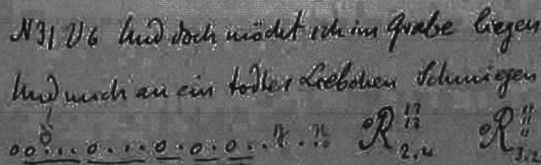 N31 V6 Und doch möcht ich im Grabe liegen
Und mich an ein todtes Liebchen schmiegen
R 2,4 R 3,2